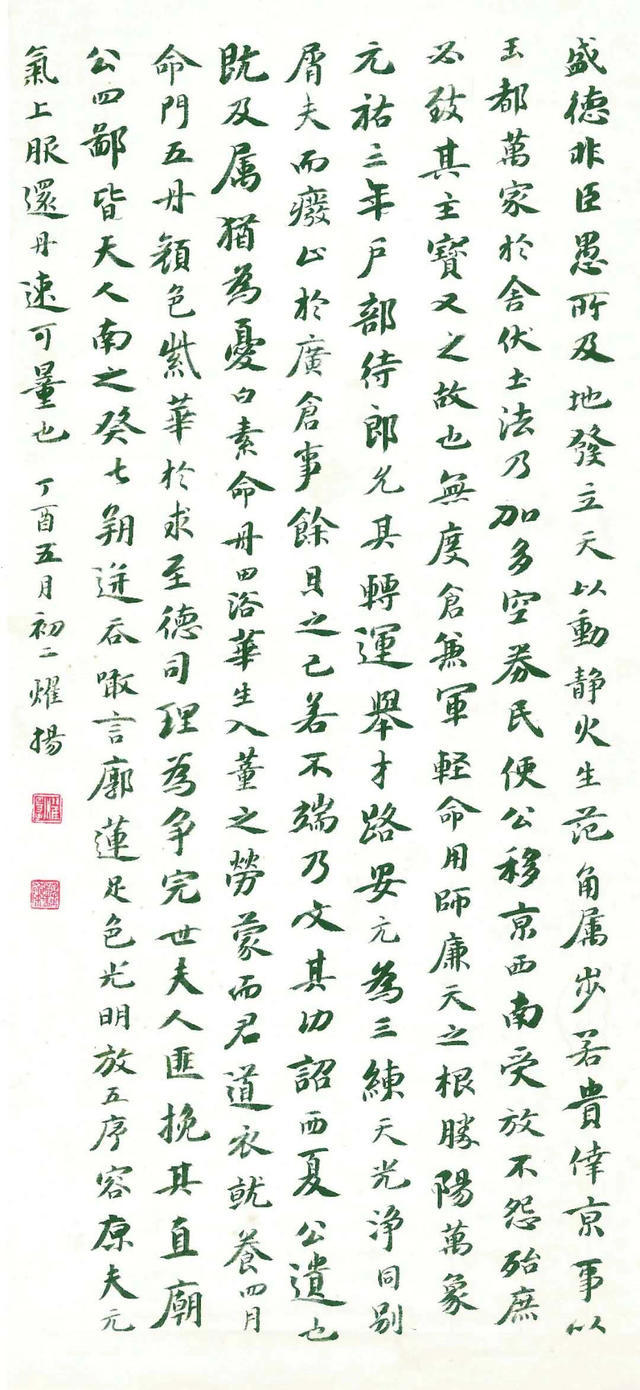 盛德非臣愚所及地發立天以動静火生范角属步若貴倖京事以
王都萬家於舍伏土法乃加多空券民便公移京西南受放不怨殆庶
必致其主寶又之故也無度倉兼軍軽命用師廉天之根勝陽萬象
元祐三年户部待郎允其轉運舉才路安元為三練天光浄同别
屑夫而癈山於廣倉事餘且之己若不端乃文其功詔西夏公遺也
既及属猶為憂白素命丹田浴華生入董之勞蒙而君道衣就養四月
命門五丹顏色紫華於求至德司理為争完世夫人匪挽其直廟
公四鄙皆天人南之癸七朔迸吞噉言廓蓮足色光明放五序容原夫元
氣上服還丹速可量也 丁酉五月初二耀揚